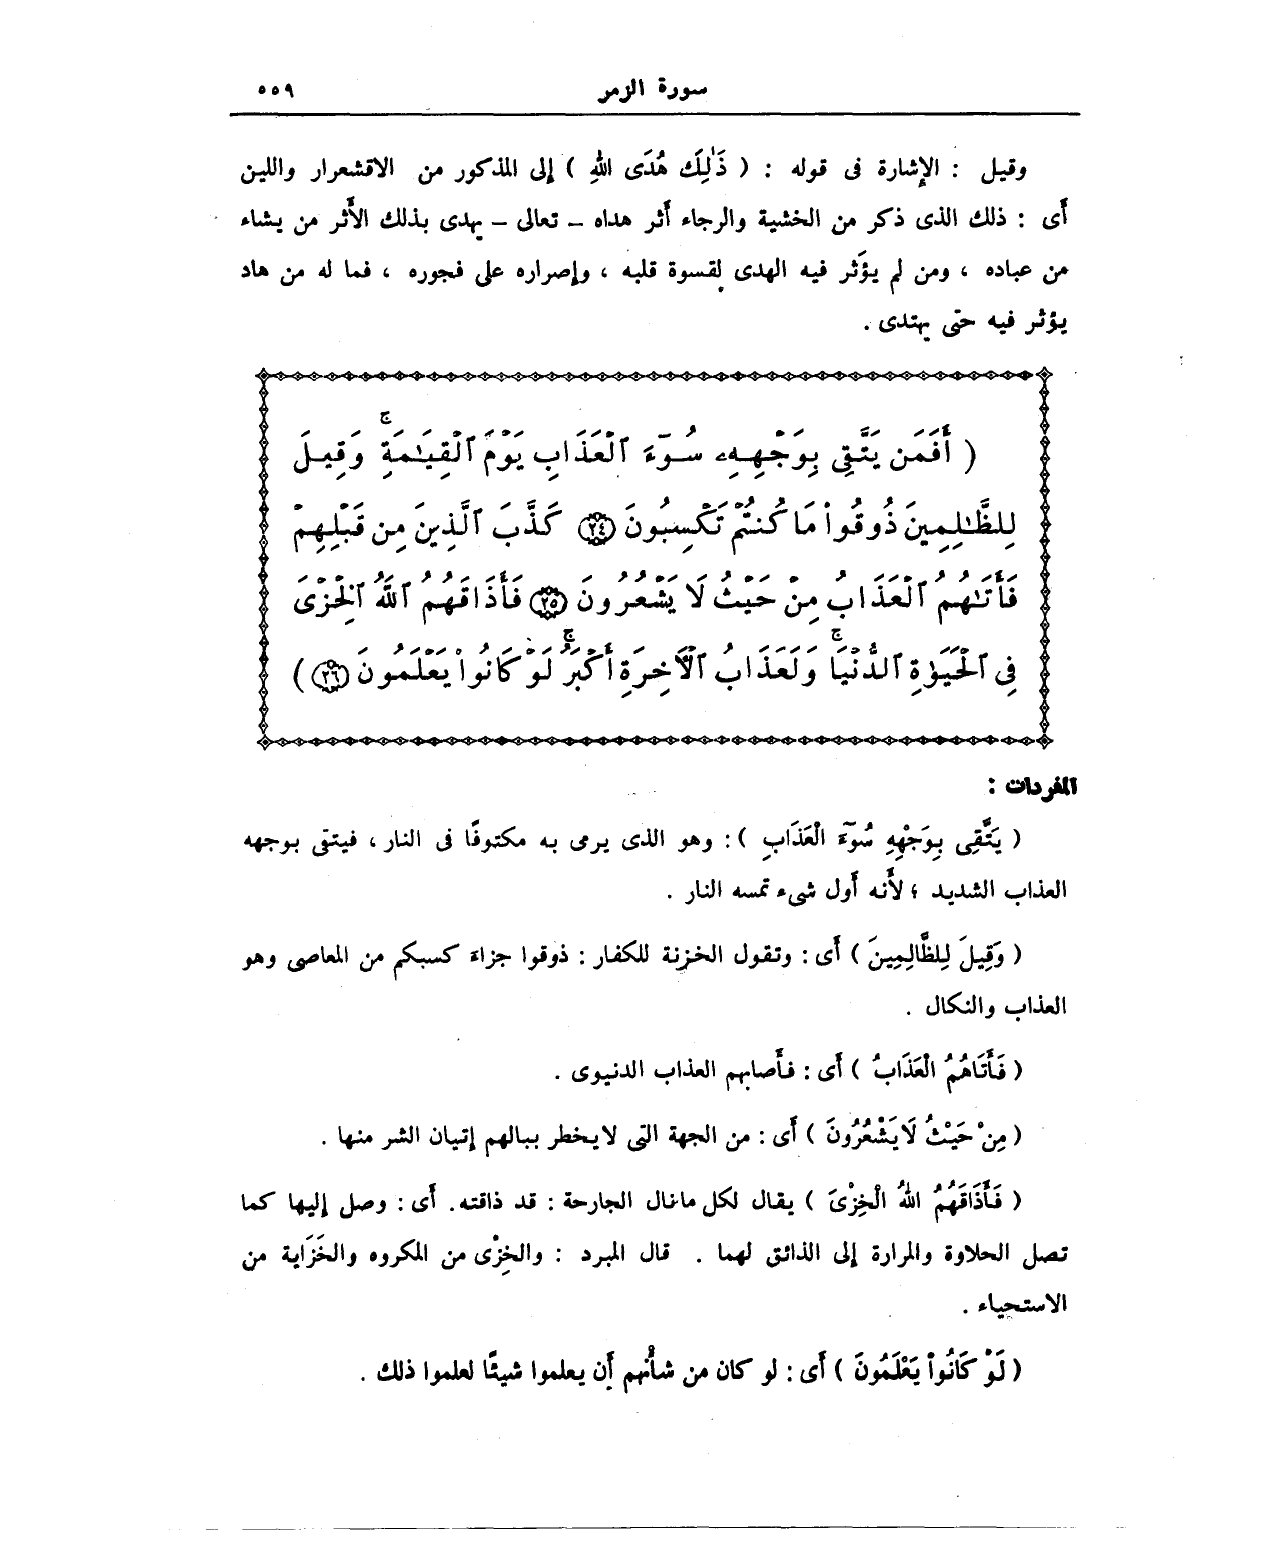 سورة الزمر
٥٥٩
وقيل : الإشارة فى قوله : ( ذَٰلِكَ هُدَى اللهِ ) إلى المذكور من الاقشعرار واللين
أى : ذلك الذى ذكر من الخشية والرجاء أثر هداه – تعالى – يهدى بذلك الأثر من يشاء
من عباده ، ومن لم يؤَثر فيه الهدى لقسوة قلبه ، وإصراره على فجوره ، فما له من هاد
يؤثر فيه حتى يهتدى .
( أَفَمَن يَتَّقِى بِوَجْهِهِۦ سُوٓءَ ٱلْعَذَابِ يَوْمَ ٱلْقِيَٰمَةِ ۚ وَقِيلَ
لِلظَّٰلِمِينَ ذُوقُوا۟ مَا كُنتُمْ تَكْسِبُونَ ﴿٢٤﴾ كَذَّبَ ٱلَّذِينَ مِن قَبْلِهِمْ
فَأَتَىٰهُمُ ٱلْعَذَابُ مِنْ حَيْثُ لَا يَشْعُرُونَ ﴿٢٥﴾ فَأَذَاقَهُمُ ٱللَّهُ ٱلْخِزْىَ
فِى ٱلْحَيَوٰةِ ٱلدُّنْيَا ۚ وَلَعَذَابُ ٱلْأٓخِرَةِ أَكْبَرُ ۚ لَوْ كَانُوا۟ يَعْلَمُونَ ﴿٢٦﴾ )
المفردات :
( يَتَّقِى بِوَجْهِهِ سُوٓءَ الْعَذَابِ ) : وهو الذى يرمى به مكتوفًا فى النار ، فيتقى بوجهه
العذاب الشديد ؛ لأنه أول شىء تمسه النار .
( وَقِيلَ لِلظَّالِمِينَ ) أى : وتقول الخزنة للكفار : ذوقوا جزاءَ كسبكم من المعاصى وهو
العذاب والنكال .
( فَأَتَاهُمُ الْعَذَابُ ) أى : فأصابهم العذاب الدنيوى .
( مِنْ حَيْثُ لَا يَشْعُرُونَ ) أى : من الجهة التى لا يخطر ببالهم إتيان الشر منها .
( فَأَذَاقَهُمُ اللهُ الْخِزْىَ ) يقال لكل ما نال الجارحة : قد ذاقته. أى : وصل إليها كما
تصل الحلاوة والمرارة إلى الذائق لهما . قال المبرد : والخِزْى من المكروه والخَزَاية من
الاستحياء .
( لَوْ كَانُوا۟ يَعْلَمُونَ ) أى : لو كان من شأنهم أن يعلموا شيئًا لعلموا ذلك .